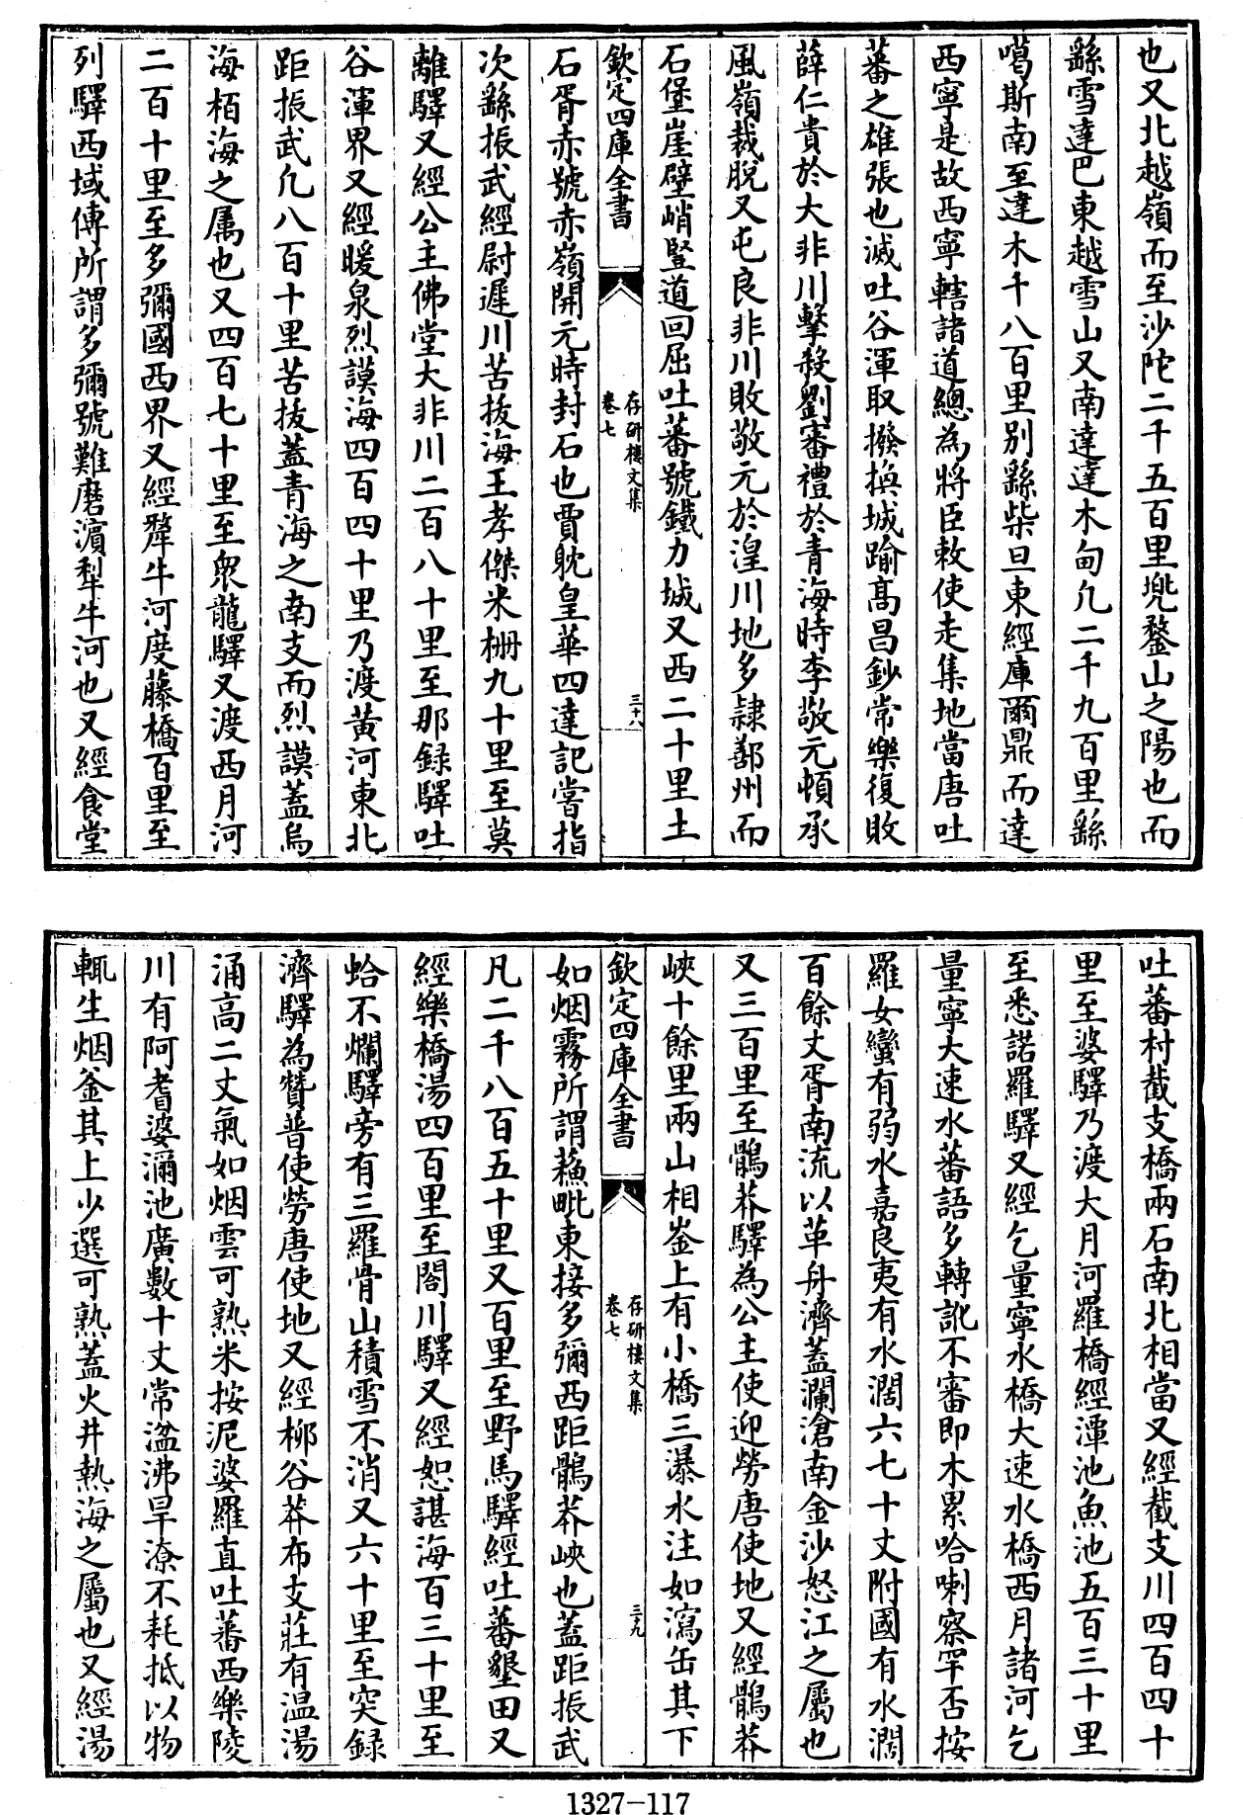 也又北越嶺而至沙陀二千五百里兠鍪山之陽也而
繇雪達巴東越雪山又南達達木甸凢二千九百里繇
噶斯南至達木千八百里别繇柴旦東經庫爾鼎而達
西寧是故西寧轄諸道總為將臣敕使走集地當唐吐
蕃之雄張也滅吐谷渾取撥換城踰髙昌鈔常樂復敗
薛仁貴於大非川擊殺劉審禮於青海時李敬元頓承
風嶺裁脱又屯良非川敗敬元於湟川地多隷鄯州而
石堡崖壁峭豎道回屈吐蕃號鐵力城又西二十里土
欽定四庫全書
存研樓文集
卷七
三十八
石胥赤號赤嶺開元時封石也賈躭皇華四達記嘗指
次繇振武經尉遲川苦拔海王孝傑米柵九十里至莫
離驛又經公主佛堂大非川二百八十里至那録驛吐
谷渾界又經暖泉烈謨海四百四十里乃渡黄河東北
距振武凢八百十里苦拔蓋青海之南支而烈謨蓋烏
海栢海之属也又四百七十里至衆龍驛又渡西月河
二百十里至多彌國西界又經犛牛河度藤橋百里至
列驛西域傳所謂多彌號難磨濵犁牛河也又經食堂
吐蕃村截支橋兩石南北相當又經截支川四百四十
里至婆驛乃渡大月河羅橋經潭池魚池五百三十里
至悉諾羅驛又經乞量寧水橋大速水橋西月諸河乞
量寧大速水蕃語多轉訛不審即木累哈喇察罕否按
羅女蠻有弱水嘉良夷有水濶六七十丈附國有水濶
百餘丈胥南流以革舟濟蓋瀾滄南金沙怒江之屬也
又三百里至鶻莽驛為公主使迎勞唐使地又經鶻莽
峽十餘里兩山相崟上有小橋三瀑水注如瀉缶其下
欽定四庫全書
存研樓文集
卷七
三十九
如烟霧所謂蘓毗東接多彌西距鶻莽峽也蓋距振武
凡二千八百五十里又百里至野馬驛經吐蕃墾田又
經樂橋湯四百里至閤川驛又經恕諶海百三十里至
蛤不爛驛旁有三羅骨山積雪不消又六十里至突録
濟驛為贊普使勞唐使地又經柳谷莽布支莊有温湯
涌高二丈氣如烟雲可熟米按泥婆羅直吐蕃西樂陵
川有阿耆婆濔池廣數十丈常湓沸旱潦不耗抵以物
輒生烟釜其上少選可熟蓋火井熱海之屬也又經湯
1327—117